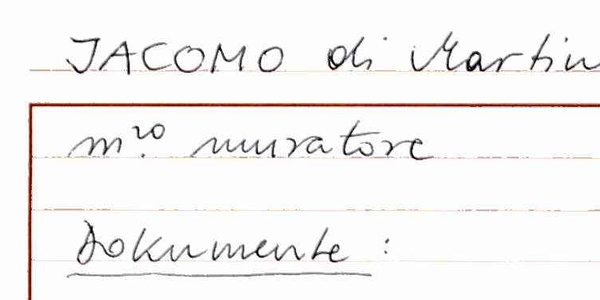 JACOMO di Martin
m.ro muratore
Dokumente :